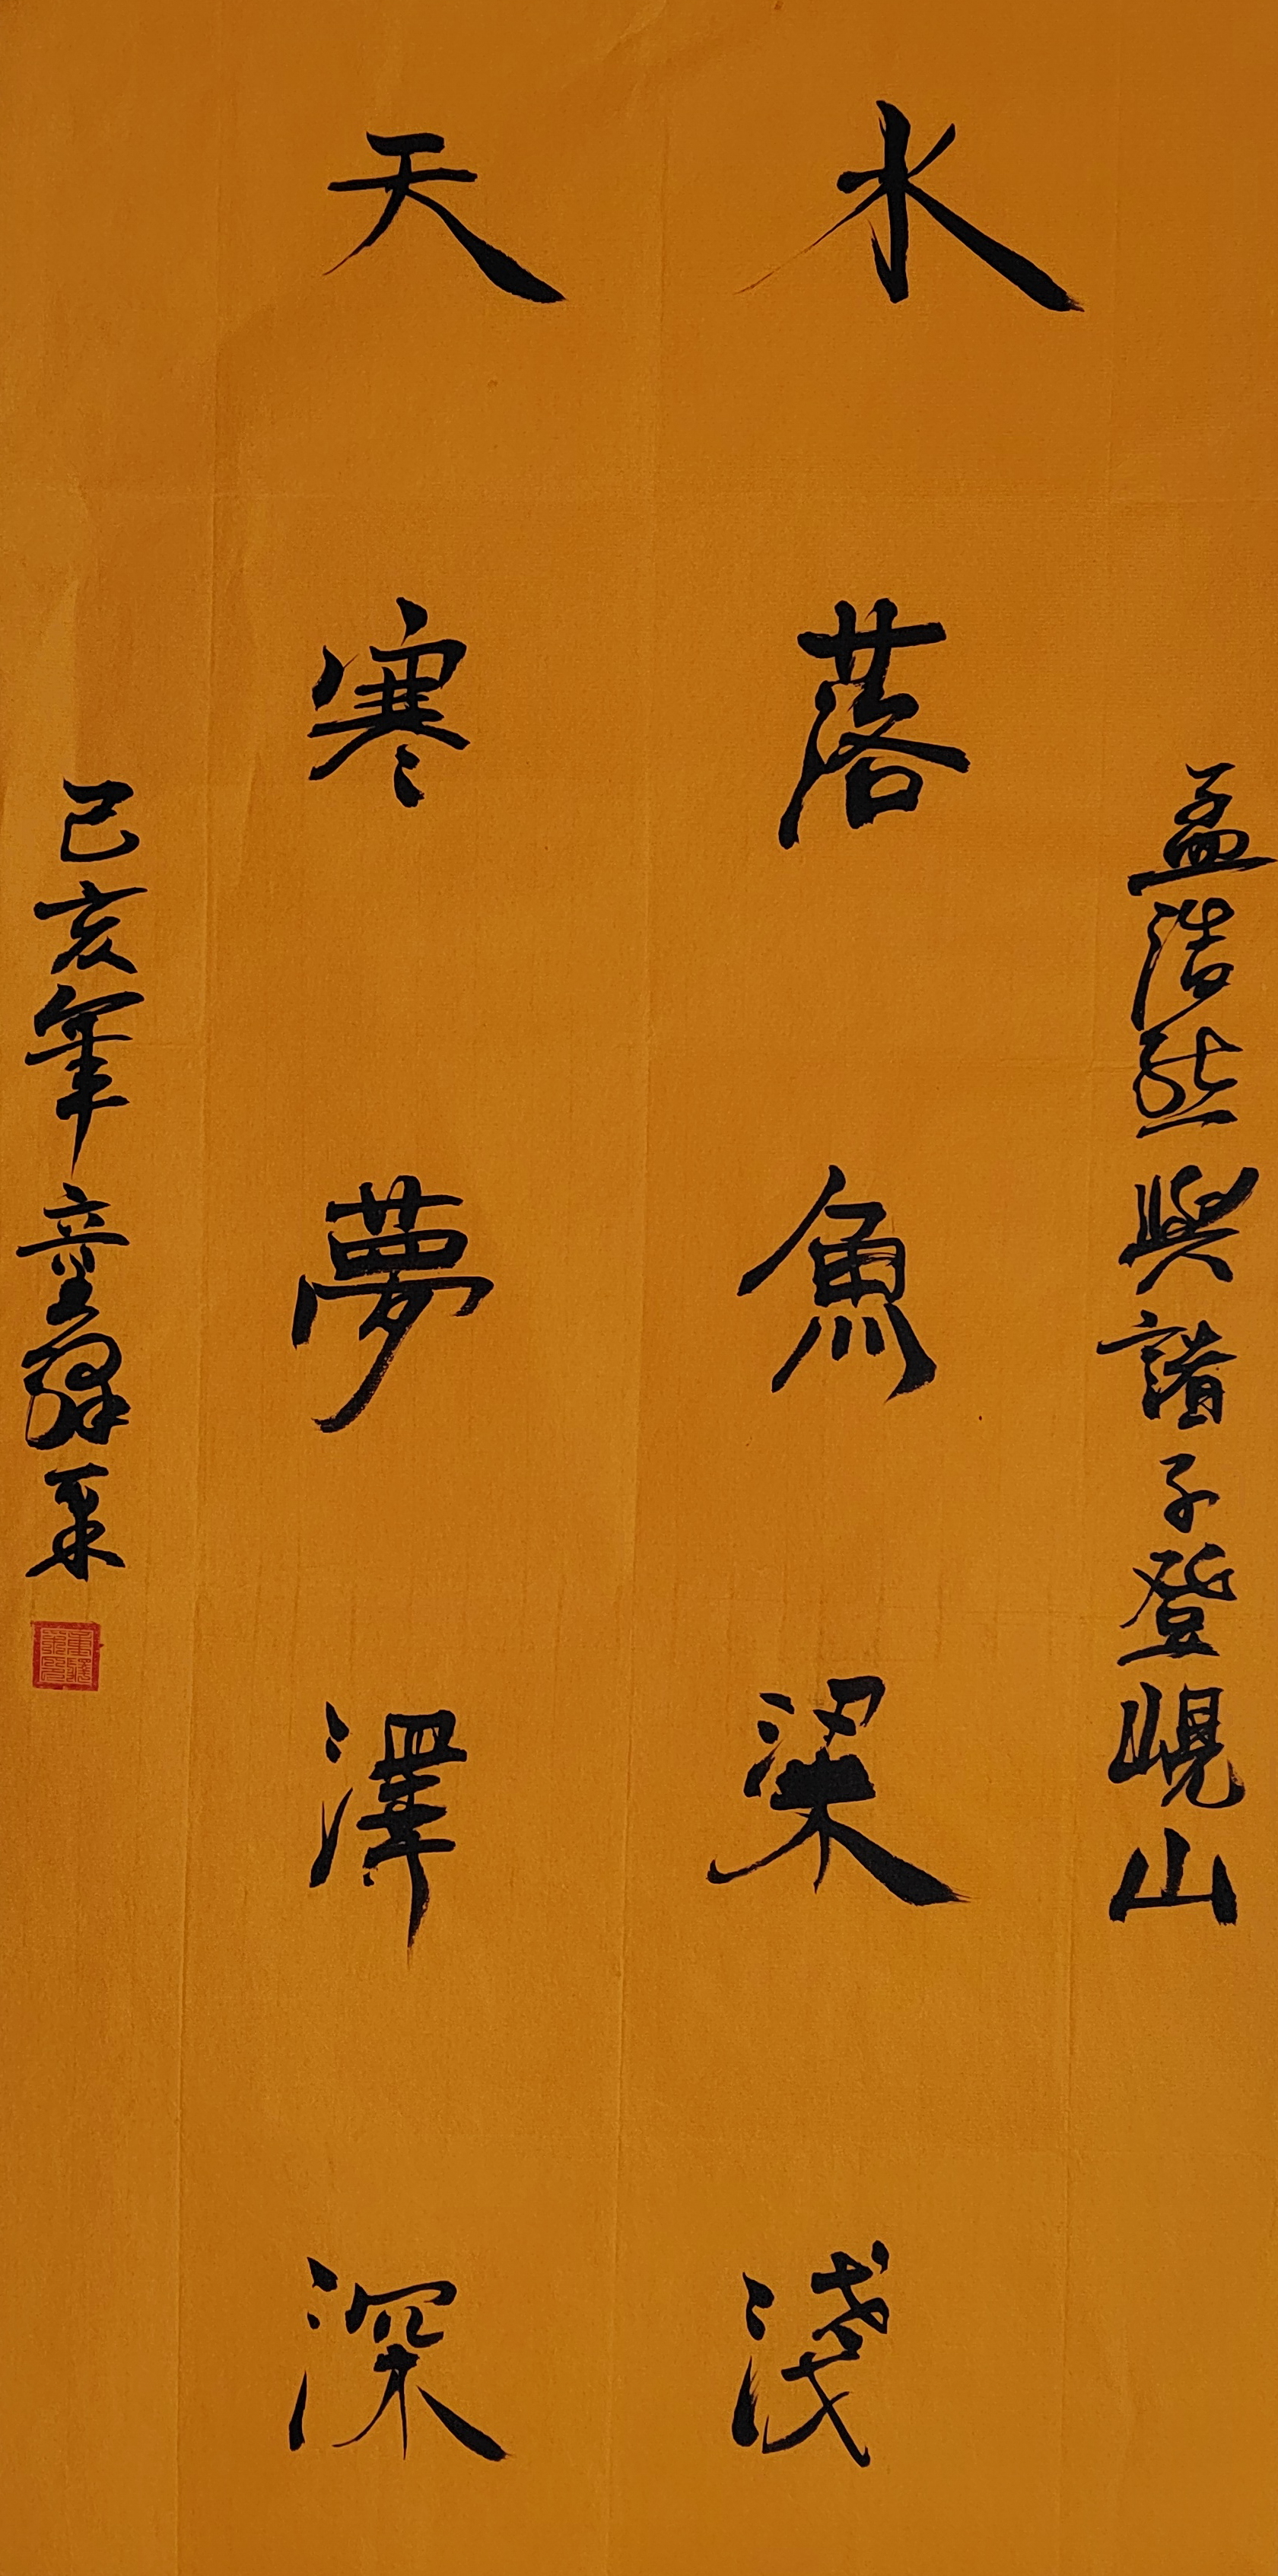 孟浩然與諸子登峴山
水落魚梁淺
天寒夢澤深
己亥年